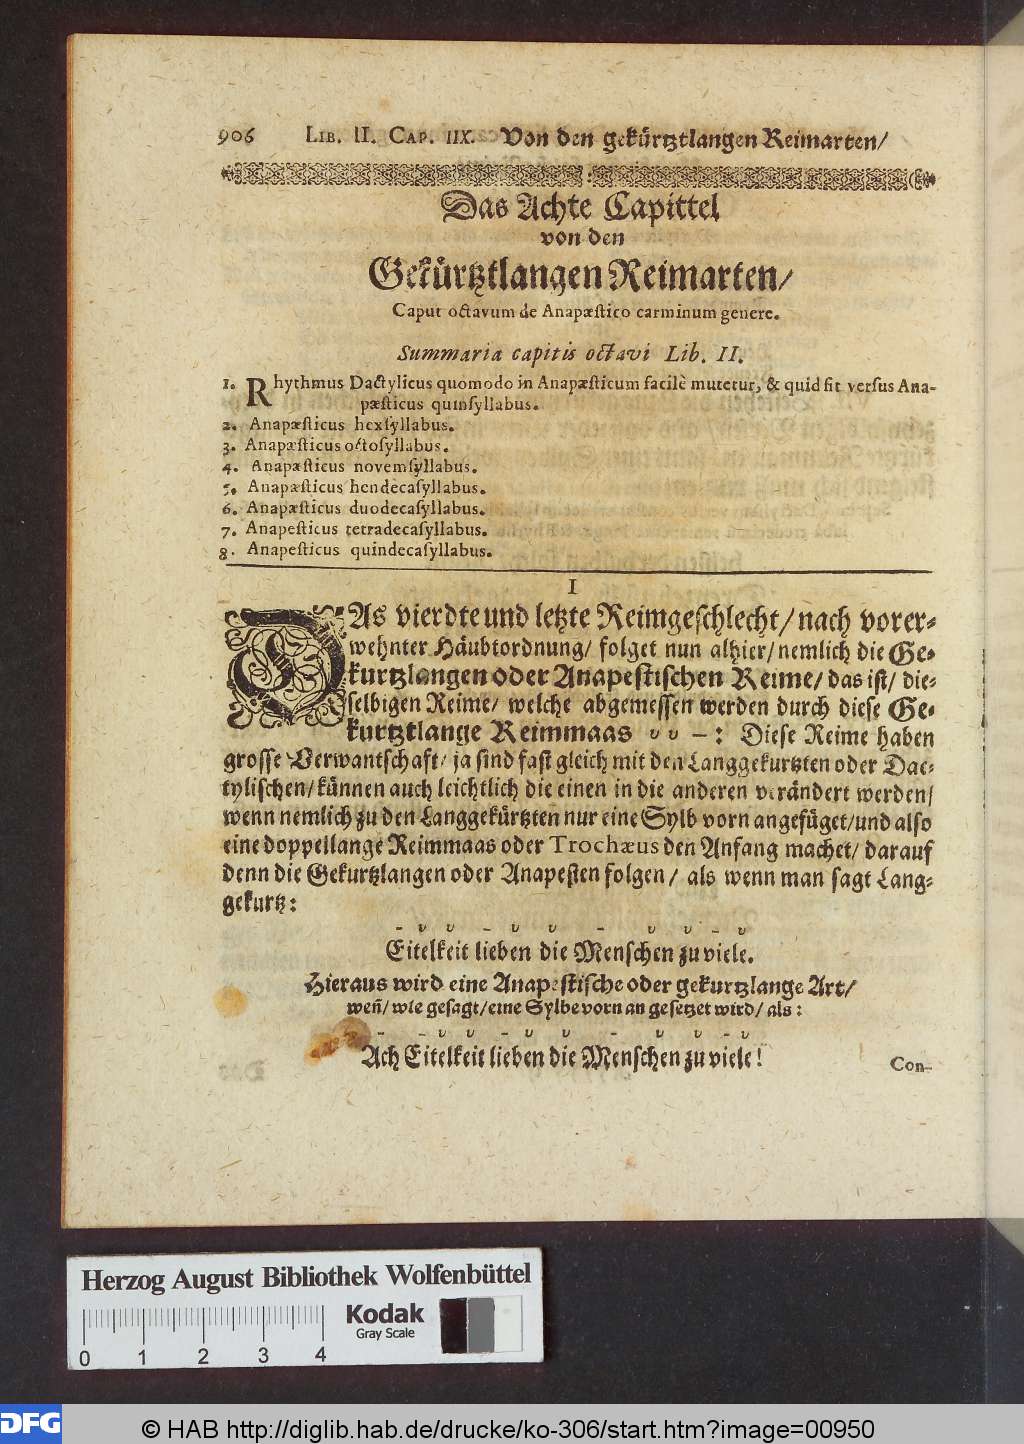 906 LIB. II. CAP. IIX. Von den gekürtztlangen Reimarten/
Das Achte Capittel
von den
Gekürtztlangen Reimarten/
Caput octavum de Anapæstico carminum genere.
Summaria capitis octavi Lib. II.
1. Rhythmus Dactylicus quomodo in Anapæsticum facilè mutetur, & quid sit versus Ana-
pæsticus quinsyllabus.
2. Anapæsticus hexsyllabus.
3. Anapæsticus octosyllabus.
4. Anapæsticus novemsyllabus.
5. Anapæsticus hendecasyllabus.
6. Anapæsticus duodecasyllabus.
7. Anapesticus tetradecasyllabus.
8. Anapesticus quindecasyllabus.
I
DAs vierdte und letzte Reimgeschlecht/ nach vorer-
wehnter Häubtordnung/ folget nun alhier/ nemlich die Ge-
kurtzlangen oder Anapestischen Reime/ das ist/ die-
selbigen Reime/ welche abgemessen werden durch diese Ge-
kurtzlange Reimmaas υ υ –: Diese Reime haben
grosse Verwantschaft/ ja sind fast gleich mit den Langgekurtzten oder Dac-
tylischen/ künnen auch leichtlich die einen in die anderen verändert werden/
wenn nemlich zu den Langgekürtzten nur eine Sylb vorn angefüget/ und also
eine doppellange Reimmaas oder Trochæus den Anfang machet/ darauf
denn die Gekurtzlangen oder Anapesten folgen/ als wenn man sagt Lang-
gekurtz:
– υ υ – υ υ – υ υ – υ
Eitelkeit lieben die Menschen zu viele.
Hieraus wird eine Anapestische oder gekurtzlange Art/
weñ/ wie gesagt/ eine Sylbe vorn an gesetzet wird/ als:
– – υ υ – υ υ – υ υ – υ
Ach Eitelkeit lieben die Menschen zu viele!
Con-
Herzog August Bibliothek Wolfenbüttel
Kodak
Gray Scale
0 1 2 3 4
DFG
© HAB http://diglib.hab.de/drucke/ko-306/start.htm?image=00950